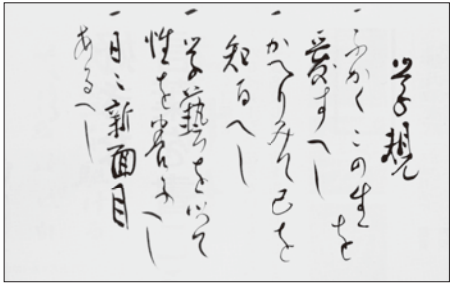 学規
一ふかくこの生を
愛すへし
一かへりみて己を
知るへし
一学藝を以て
性を養ふへし
一日々新面目
あるへし